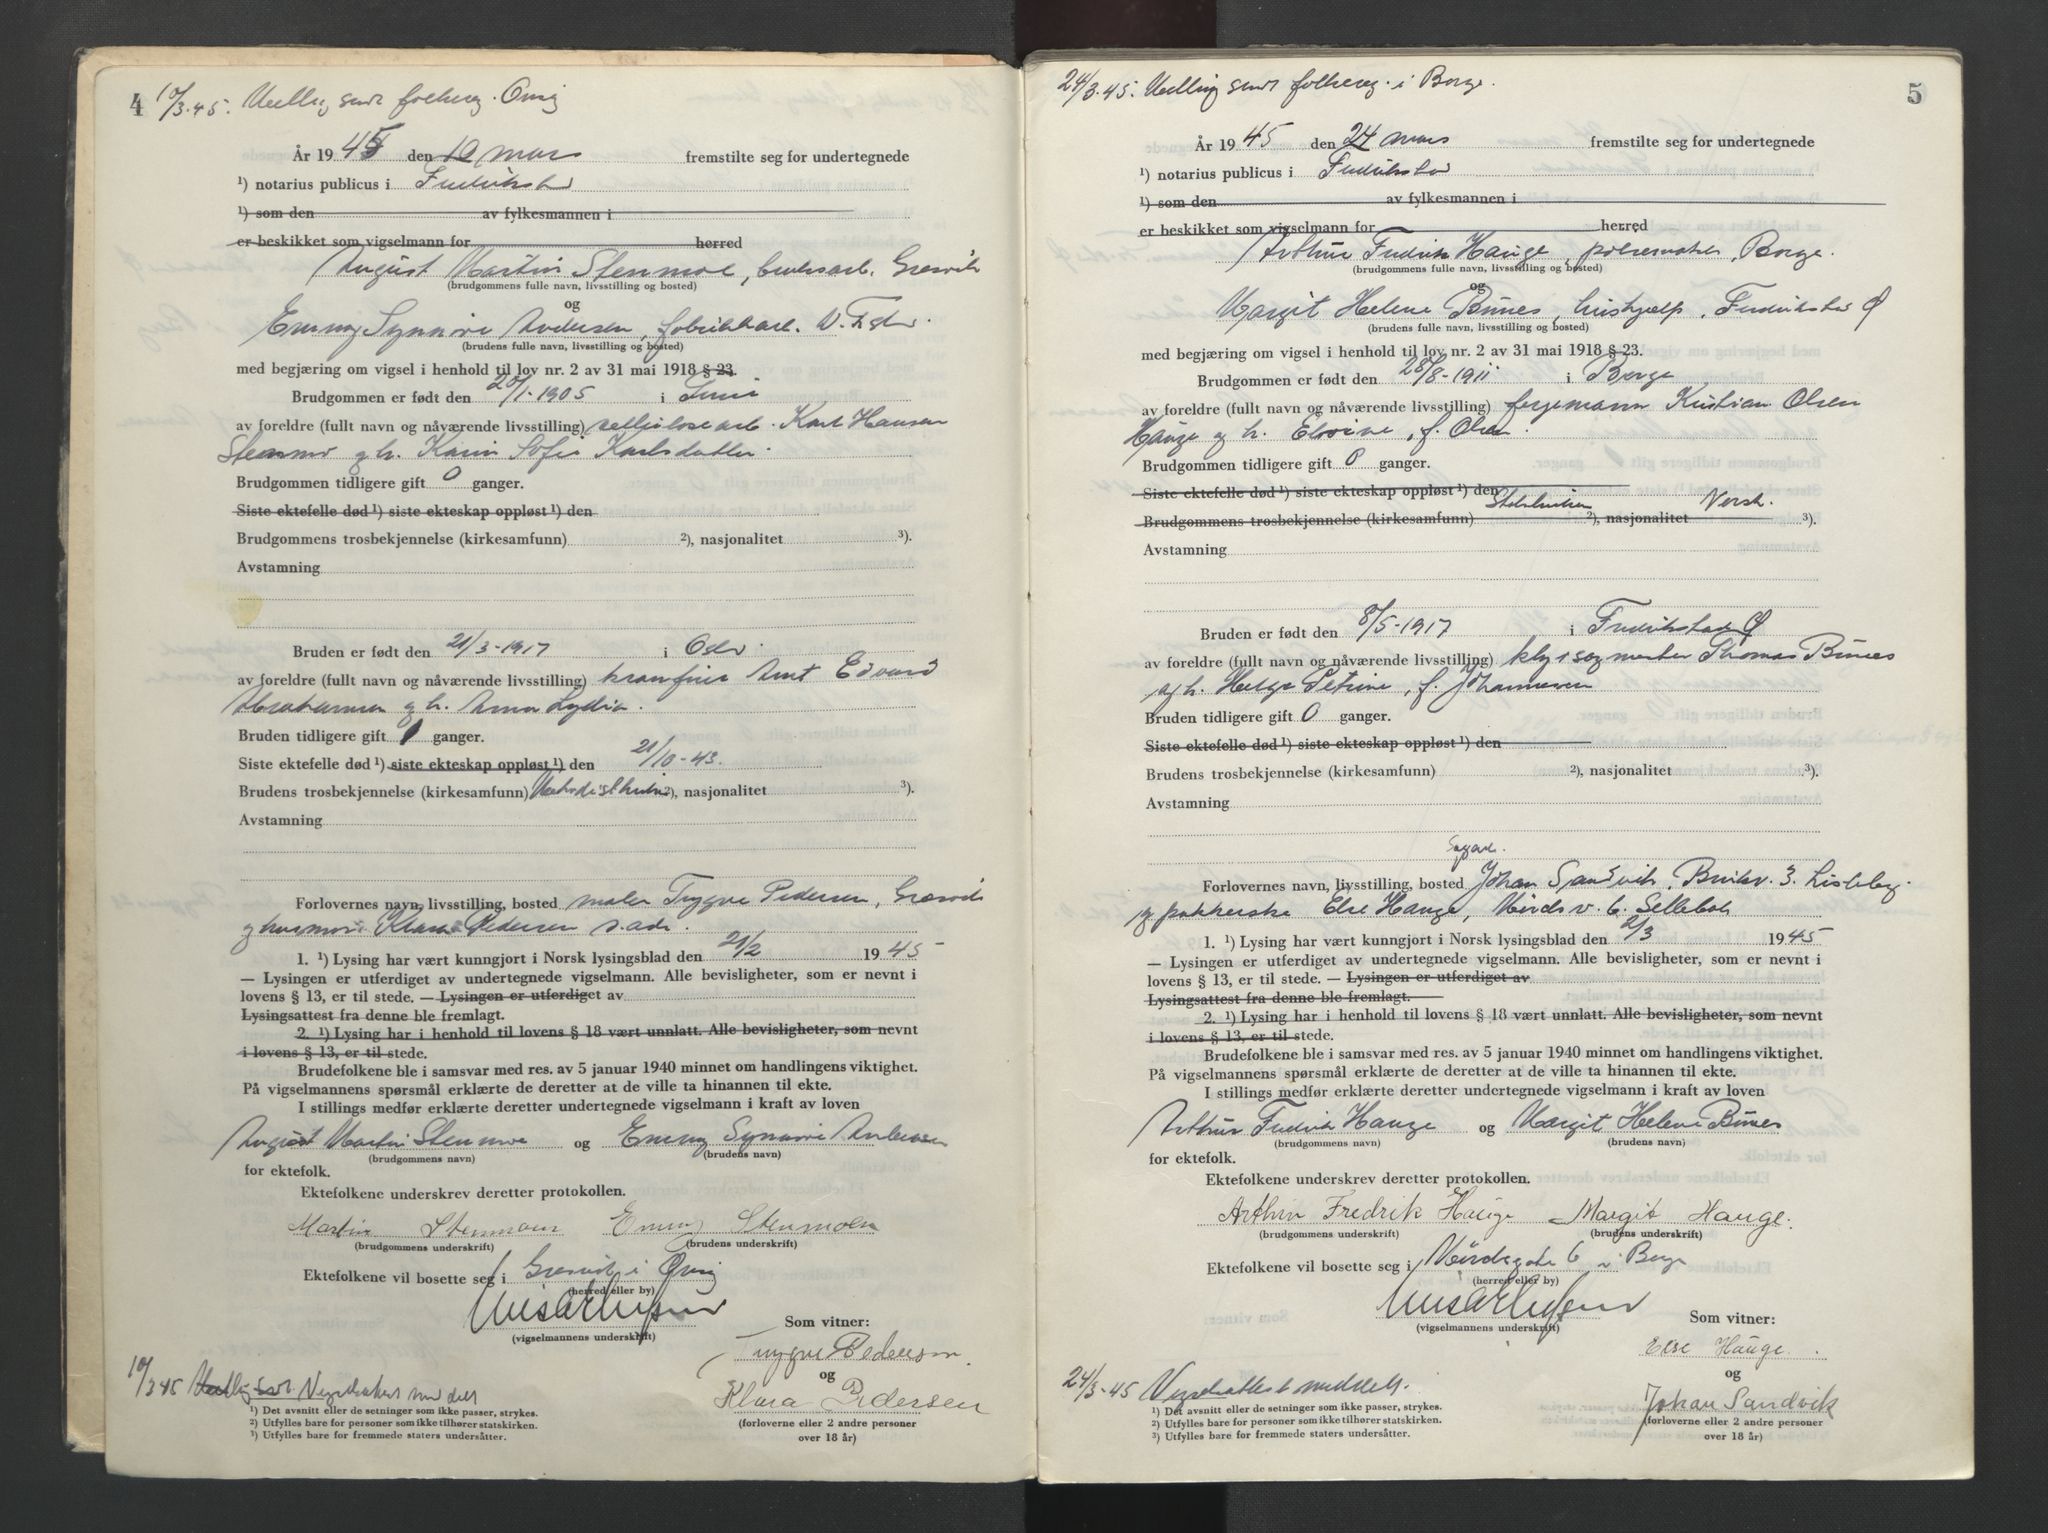 4 10/3.45. Melding sendt folkereg. Onsø
År 1945 den 10 mars fremstilte seg for undertegnede
¹) notarius publicus i Fredrikstad
¹) som den av fylkesmannen i
er beskikket som vigselmann for herred
August Martin Stenmoe, bruksarb. Gressvik
(brudgommens fulle navn, livsstilling og bosted)
og
Emmy Synnøve Andersen, fabrikkarb.
(brudens fulle navn, livsstilling og bosted)
med begjæring om vigsel i henhold til lov nr. 2 av 31 mai 1918 § 23.
Brudgommen er født den 20/1-1905 i
av foreldre (fullt navn og nåværende livsstilling) cellulosearb. Karl Hansen
Stenmo og h. Karin Sofie Karlsdatter.
Brudgommen tidligere gift 0 ganger.
Siste ektefelle død ¹) siste ekteskap oppløst ¹) den
Brudgommens trosbekjennelse (kirkesamfunn) ²), nasjonalitet ³).
Avstamning
Bruden er født den 21/3-1917 i Oslo.
av foreldre (fullt navn og nåværende livsstilling) kranfører Arnt Edvard
Abrahamsen og h. Anna Lydia.
Bruden tidligere gift 1 ganger.
Siste ektefelle død ¹) siste ekteskap oppløst ¹) den 21/10-43.
Brudens trosbekjennelse (kirkesamfunn) ²), nasjonalitet ³).
Avstamning
Forlovernes navn, livsstilling, bosted maler Trygve Pedersen, Gressvik
og husmor Klara Pedersen s. adr.
1. ¹) Lysing har vært kunngjort i Norsk lysingsblad den 21/2 1945
— Lysingen er utferdiget av undertegnede vigselmann. Alle bevisligheter, som er nevnt i
lovens § 13, er til stede. — Lysingen er utferdiget av
Lysingsattest fra denne ble fremlagt.
2. ¹) Lysing har i henhold til lovens § 18 vært unnlatt. Alle bevisligheter, som nevnt
i lovens § 13, er til stede.
Brudefolkene ble i samsvar med res. av 5 januar 1940 minnet om handlingens viktighet.
På vigselmannens spørsmål erklærte de deretter at de ville ta hinannen til ekte.
I stillings medfør erklærte deretter undertegnede vigselmann i kraft av loven
August Martin Stenmoe og Emmy Synnøve Andersen
(brudgommens navn) (brudens navn)
for ektefolk.
Ektefolkene underskrev deretter protokollen.
Martin Stenmoen Emmy Stenmoen
(brudgommens underskrift) (brudens underskrift)
Ektefolkene vil bosette seg i Gressvik i Onsø
(herred eller by)
(vigselmannens underskrift)
Som vitner:
Trygve Pedersen.
og
Klara Pedersen
(forloverne eller 2 andre personer
over 18 år)
10/3 45 Vigselattest meddelt
¹) Det avsnitt eller de setninger som ikke passer, strykes.
²) Utfylles bare for personer som ikke tilhører statskirken.
³) Utfylles bare for fremmede staters undersåtter.
24/3.45. Melding sendt folkereg. i Borge. 5
År 1945 den 24 mars fremstilte seg for undertegnede
¹) notarius publicus i Fredrikstad
¹) som den av fylkesmannen i
er beskikket som vigselmann for herred
Arthur Fredrik Hauge, Borge.
(brudgommens fulle navn, livsstilling og bosted)
og
Margit Helene Bûnes, hushjelp, Fredrikstad Ø
(brudens fulle navn, livsstilling og bosted)
med begjæring om vigsel i henhold til lov nr. 2 av 31 mai 1918 § 23.
Brudgommen er født den 28/8-1911 i Borge
av foreldre (fullt navn og nåværende livsstilling) fergemann Kristian Olsen
Hauge og h. Elvine, f. Olsen.
Brudgommen tidligere gift 0 ganger.
Siste ektefelle død ¹) siste ekteskap oppløst ¹) den
Brudgommens trosbekjennelse (kirkesamfunn) Statskirken ²), nasjonalitet Norsk. ³).
Avstamning
Bruden er født den 8/5-1917 i Fredrikstad Ø
av foreldre (fullt navn og nåværende livsstilling) Thomas Bûnes
og h. Helga Petrine, f. Johannesen
Bruden tidligere gift 0 ganger.
Siste ektefelle død ¹) siste ekteskap oppløst ¹) den
Brudens trosbekjennelse (kirkesamfunn) ²), nasjonalitet ³).
Avstamning
Sagarb.
Forlovernes navn, livsstilling, bosted Johan Sandvik, Bruksv. 3. Lisleby.
og pakkerske Else Hauge, v. 6. Sellebak
1. ¹) Lysing har vært kunngjort i Norsk lysingsblad den 2/3 1945
— Lysingen er utferdiget av undertegnede vigselmann. Alle bevisligheter, som er nevnt i
lovens § 13, er til stede. — Lysingen er utferdiget av
Lysingsattest fra denne ble fremlagt.
2. ¹) Lysing har i henhold til lovens § 18 vært unnlatt. Alle bevisligheter, som nevnt
i lovens § 13, er til stede.
Brudefolkene ble i samsvar med res. av 5 januar 1940 minnet om handlingens viktighet.
På vigselmannens spørsmål erklærte de deretter at de ville ta hinannen til ekte.
I stillings medfør erklærte deretter undertegnede vigselmann i kraft av loven
Arthur Fredrik Hauge og Margit Helene Bûnes
(brudgommens navn) (brudens navn)
for ektefolk.
Ektefolkene underskrev deretter protokollen.
Arthur Fredrik Hauge Margit Hauge.
(brudgommens underskrift) (brudens underskrift)
Ektefolkene vil bosette seg i 6 i Borge
(herred eller by)
(vigselmannens underskrift)
Som vitner:
Else Hauge.
og
Johan Sandvik
(forloverne eller 2 andre personer
over 18 år)
24/3-45 Vigselattest meddelt.
¹) Det avsnitt eller de setninger som ikke passer, strykes.
²) Utfylles bare for personer som ikke tilhører statskirken.
³) Utfylles bare for fremmede staters undersåtter.